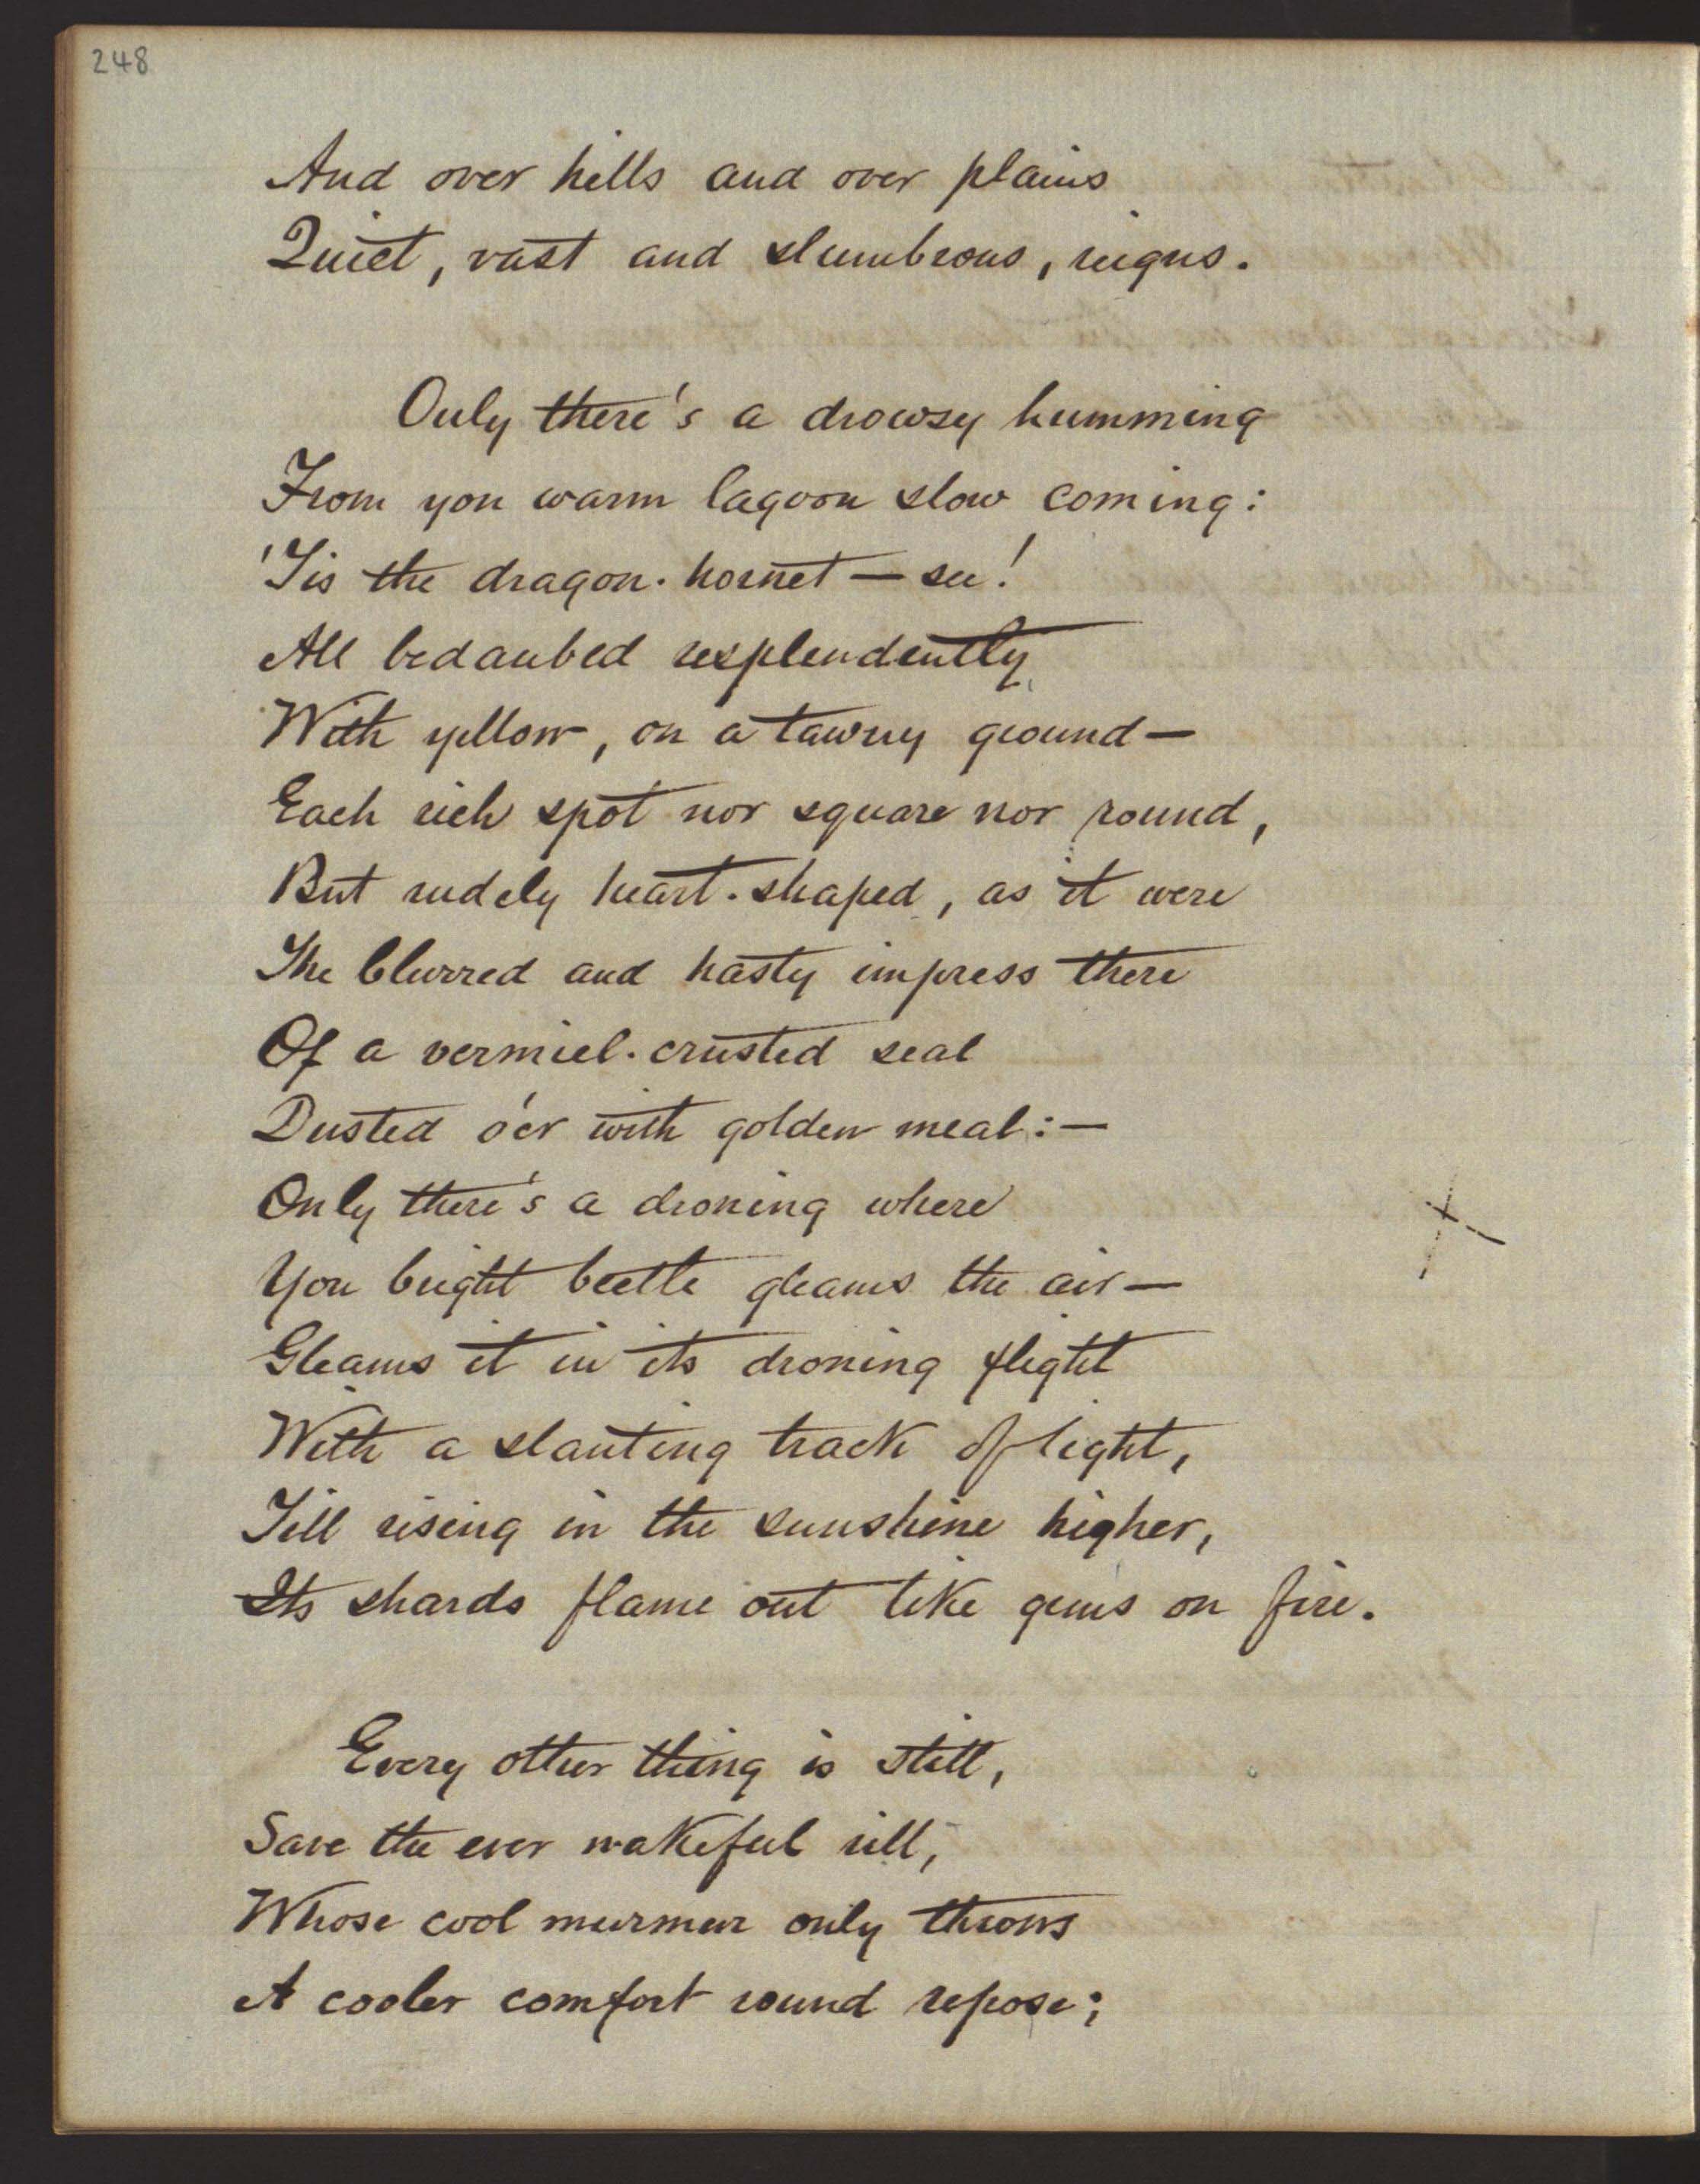 248
And over hills and over plains
Quiet, vast and slumbrous, reigns.
Only there's a drowsy humming
From yon warm lagoon slow coming:
'Tis the dragon-hornet — see!
All bedaubed resplendently
With yellow, on a tawny ground —
Each rich spot nor square nor round,
But rudely heart-shaped, as it were
The blurred and hasty impress there
Of a vermiel-crusted seal
Dusted o'er with golden meal: —
Only there's a droning where
Yon bright beetle gleams the air —
Gleams it in its droning flight
With a slanting track of light,
Till rising in the sunshine higher,
Its shards flame out like gems on fire.
Every other thing is still,
Save the ever wakeful rill,
Whose cool murmur only throws
A cooler comfort round repose;